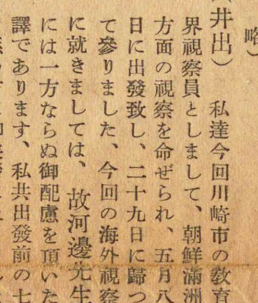 略)
(井出) 私達今回川崎市の敎育
界視察員としまして、朝鮮滿洲
方面の視察を命ぜられ、五月八
日に出發致し、二十九日に歸つ
て參りました、今回の海外視察
に就きましては、故河邊先生
には一方ならぬ御配慮を頂いた
譯であります、私共出發前の七